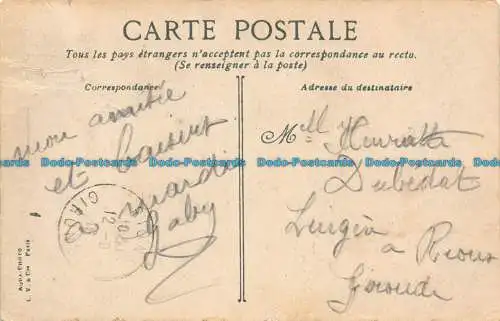 CARTE POSTALE
Tous les pays étrangers n'acceptent pas la correspondance au recto.
(Se renseigner à la poste)
Correspondance
Adresse du destinataire
mon amitié
et baisers
à mardi
Gaby
Mlle Henriette
Dubédat
à
Gironde
AQUA-PHOTO
L. V. & Cie Paris
Dodo-Postcards Dodo-Postcards Dodo-Postcards Dodo-Postcards Dodo-Postcards Dodo-Postcards